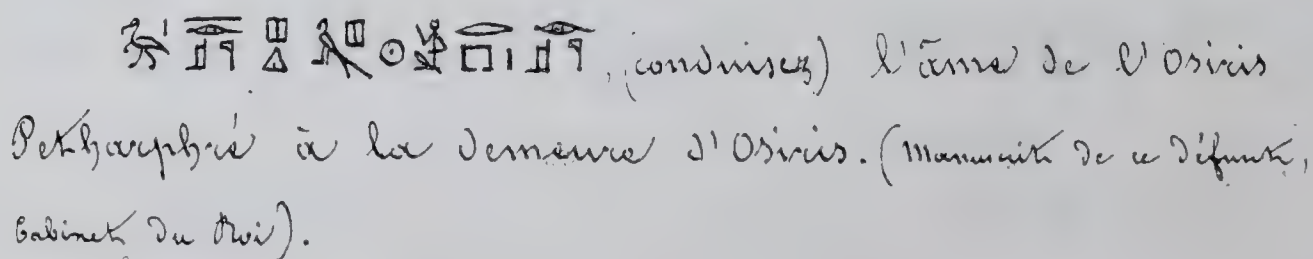 (conduisez) l'âme de l'Osiris
Petharphré à la demeure d'Osiris. (Manuscrit de ce défunt,
Cabinet du Roi).